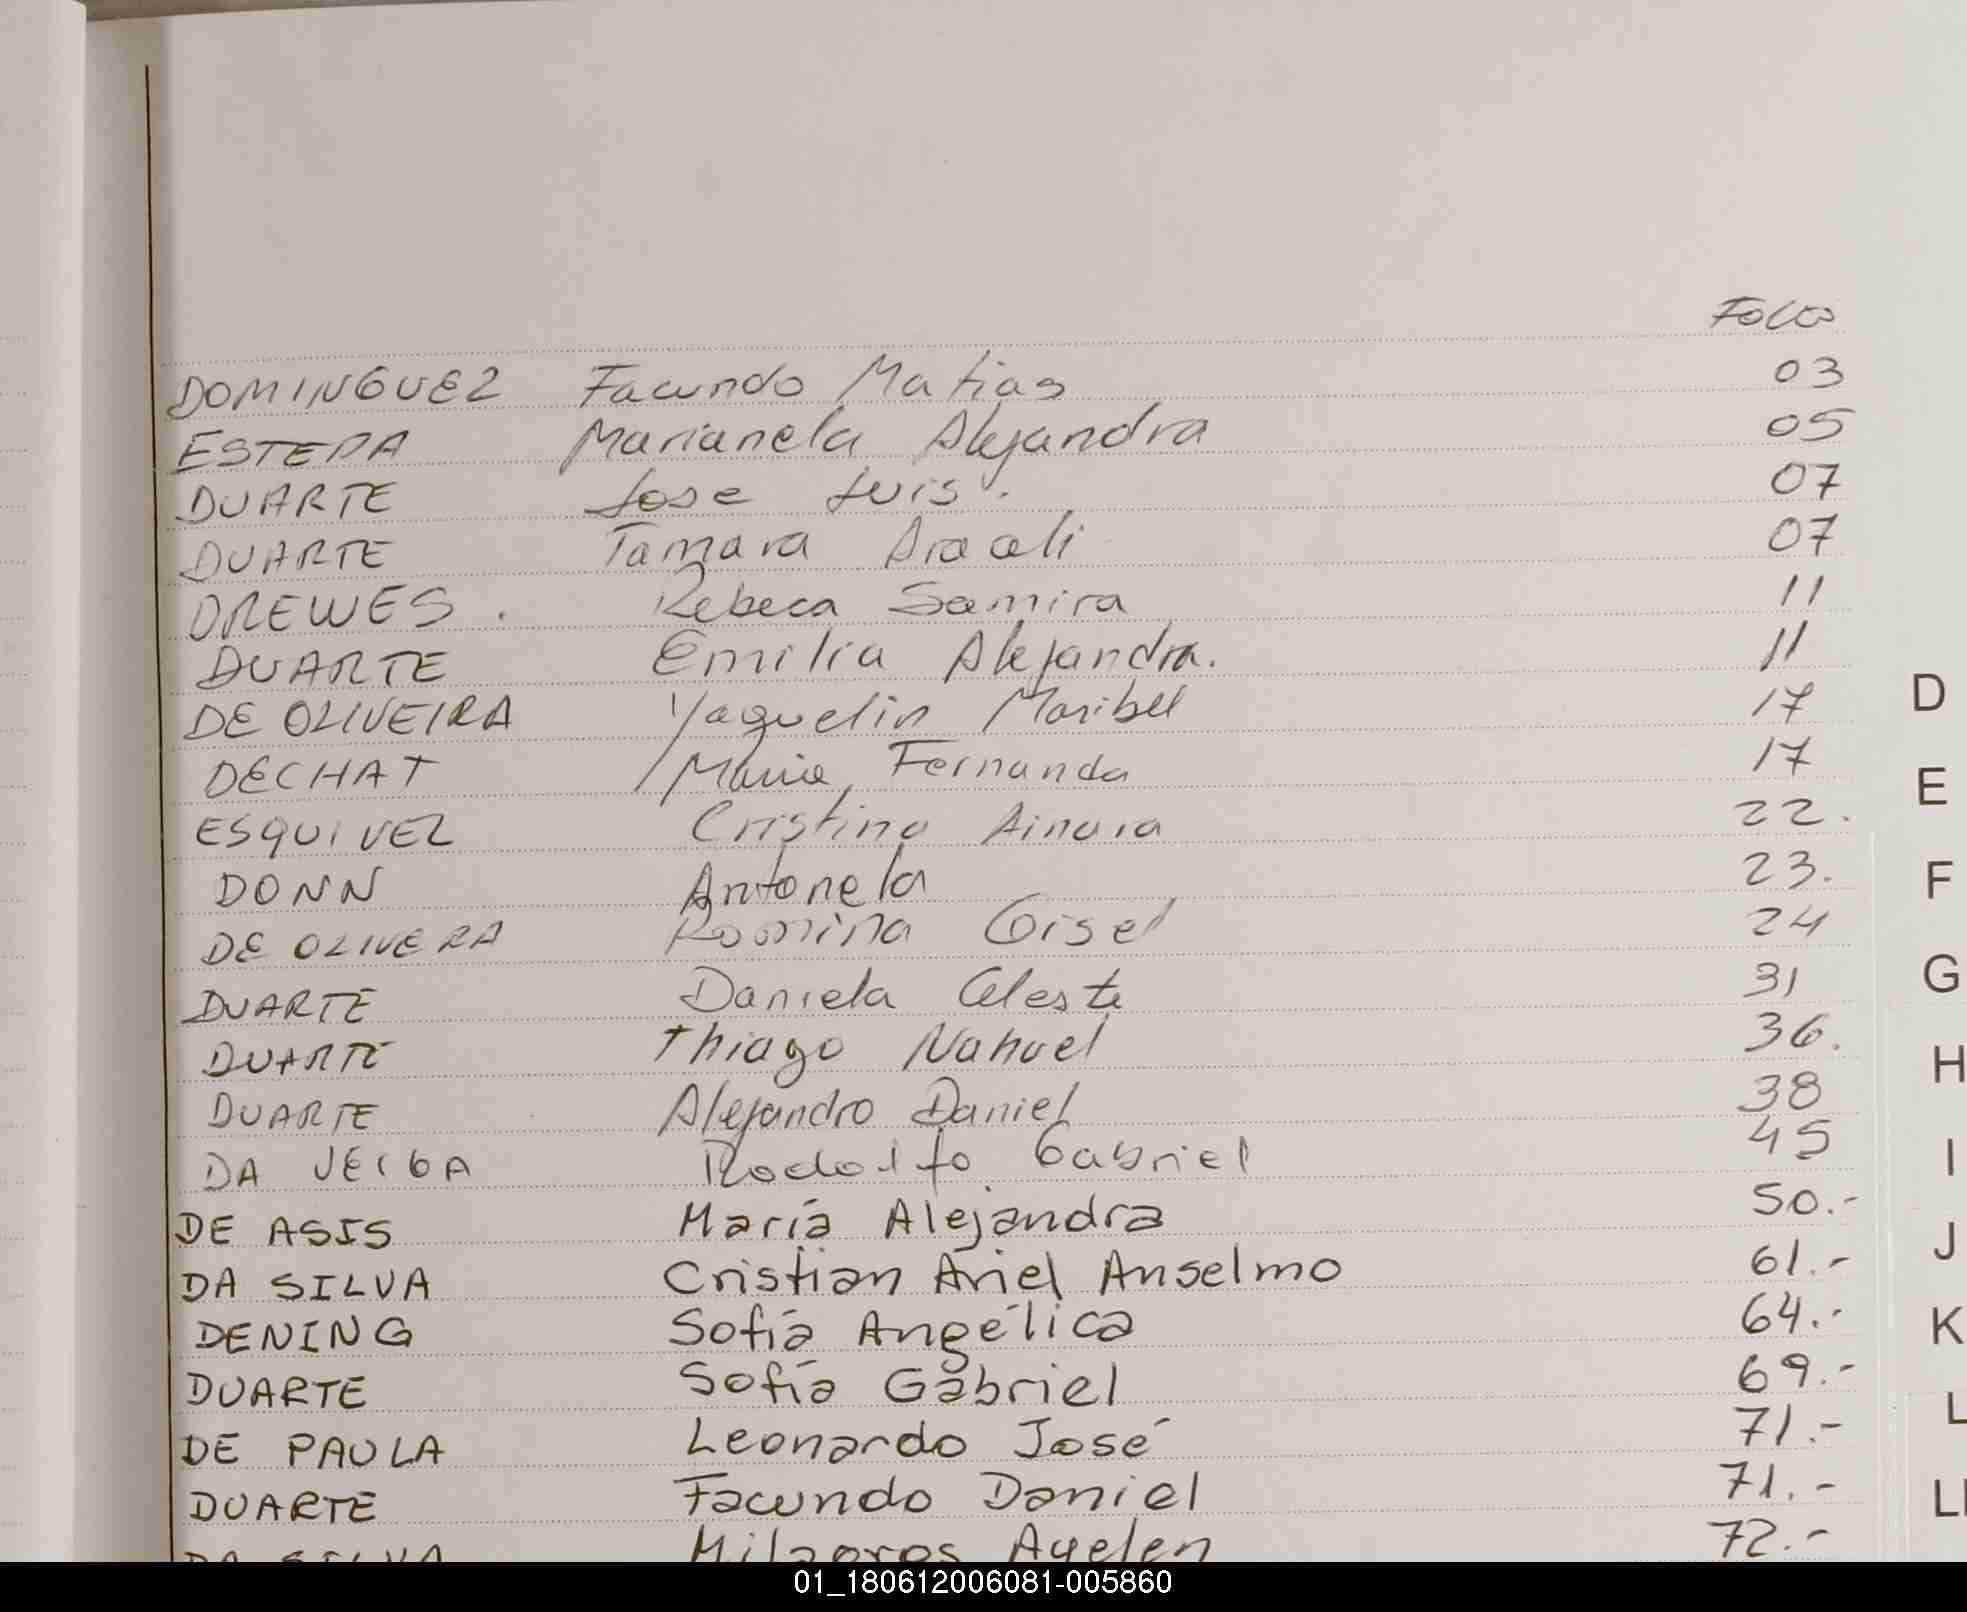 Folio
DOMINGUEZ Facundo Matias 03
ESTEPA Marianela Alejandra 05
DUARTE Jose Luis. 07
DUARTE Tamara Araceli 07
DREWES. Rebeca Samira 11
DUARTE Emilia Alejandra. 11
DE OLIVEIRA Yaquelin Maribel 17
DECHAT Maria Fernanda 17
ESQUIVEL Cristina Ainara 22.
DONN Antonela 23.
DE OLIVERA Romina Gisel 24
DUARTE Daniela Celeste 31
DUARTE Thiago Nahuel 36.
DUARTE Alejandro Daniel 38
DA VEIGA Rodolfo Gabriel 45
DE ASIS María Alejandra 50.-
DA SILVA Cristian Ariel Anselmo 61.-
DENING Sofía Angélica 64.-
DUARTE Sofía Gabriel 69.-
DE PAULA Leonardo José 71.-
DUARTE Facundo Daniel 71.-
DA SILVA Milagros Ayelen 72.-
D
E
F
G
H
I
J
K
L
LL
01_180612006081-005860